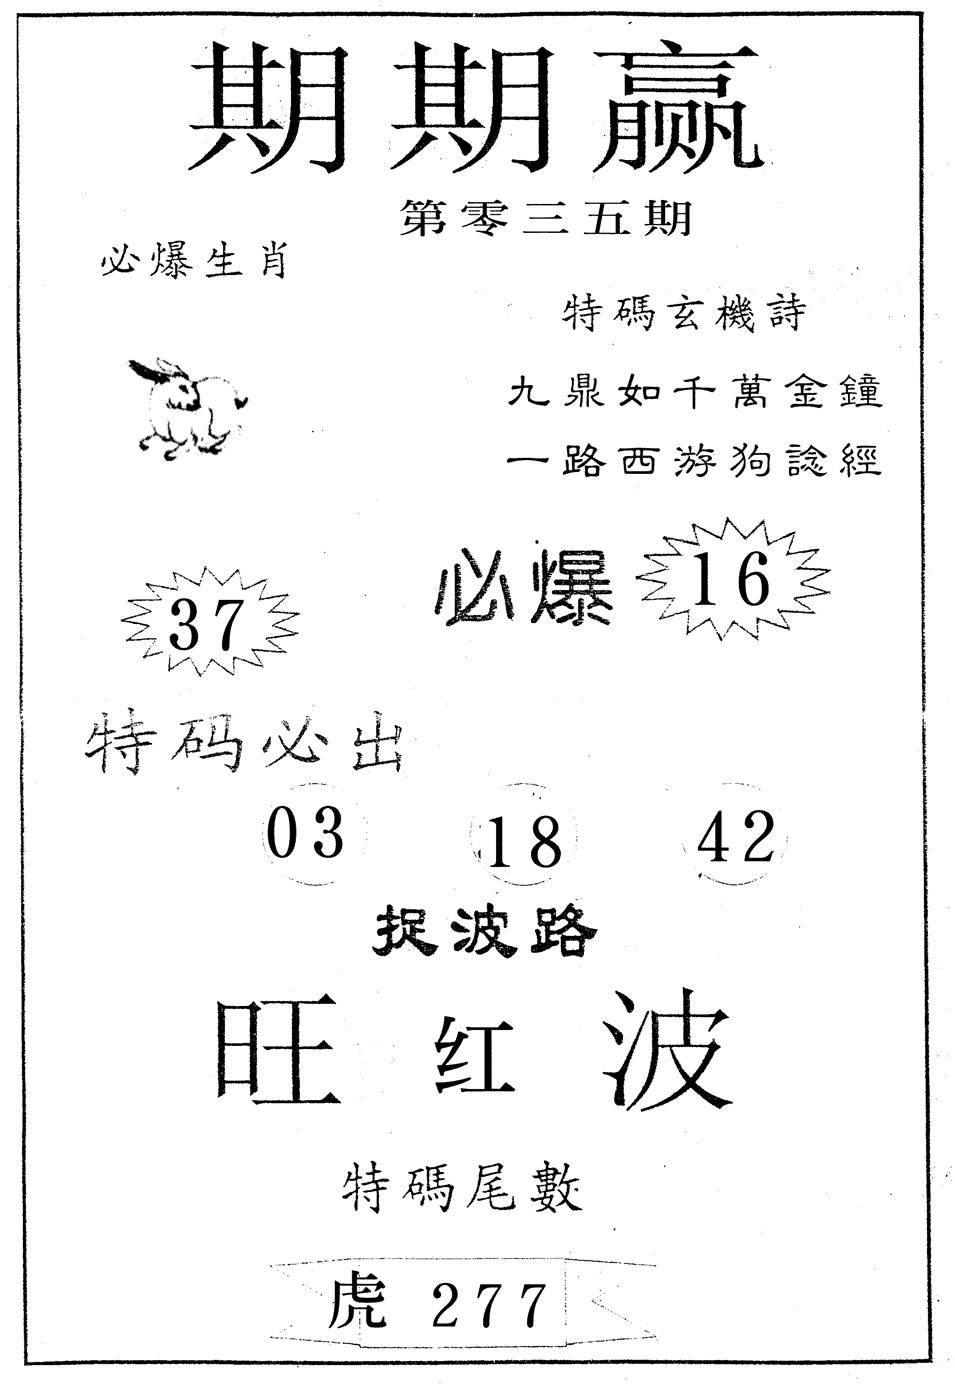 期期赢
第零三五期
必爆生肖
特碼玄機詩
九鼎如千萬金鐘
一路西游狗諗經
必爆 16
37
特码必出
03 18 42
捉波路
旺红波
特碼尾數
虎 277